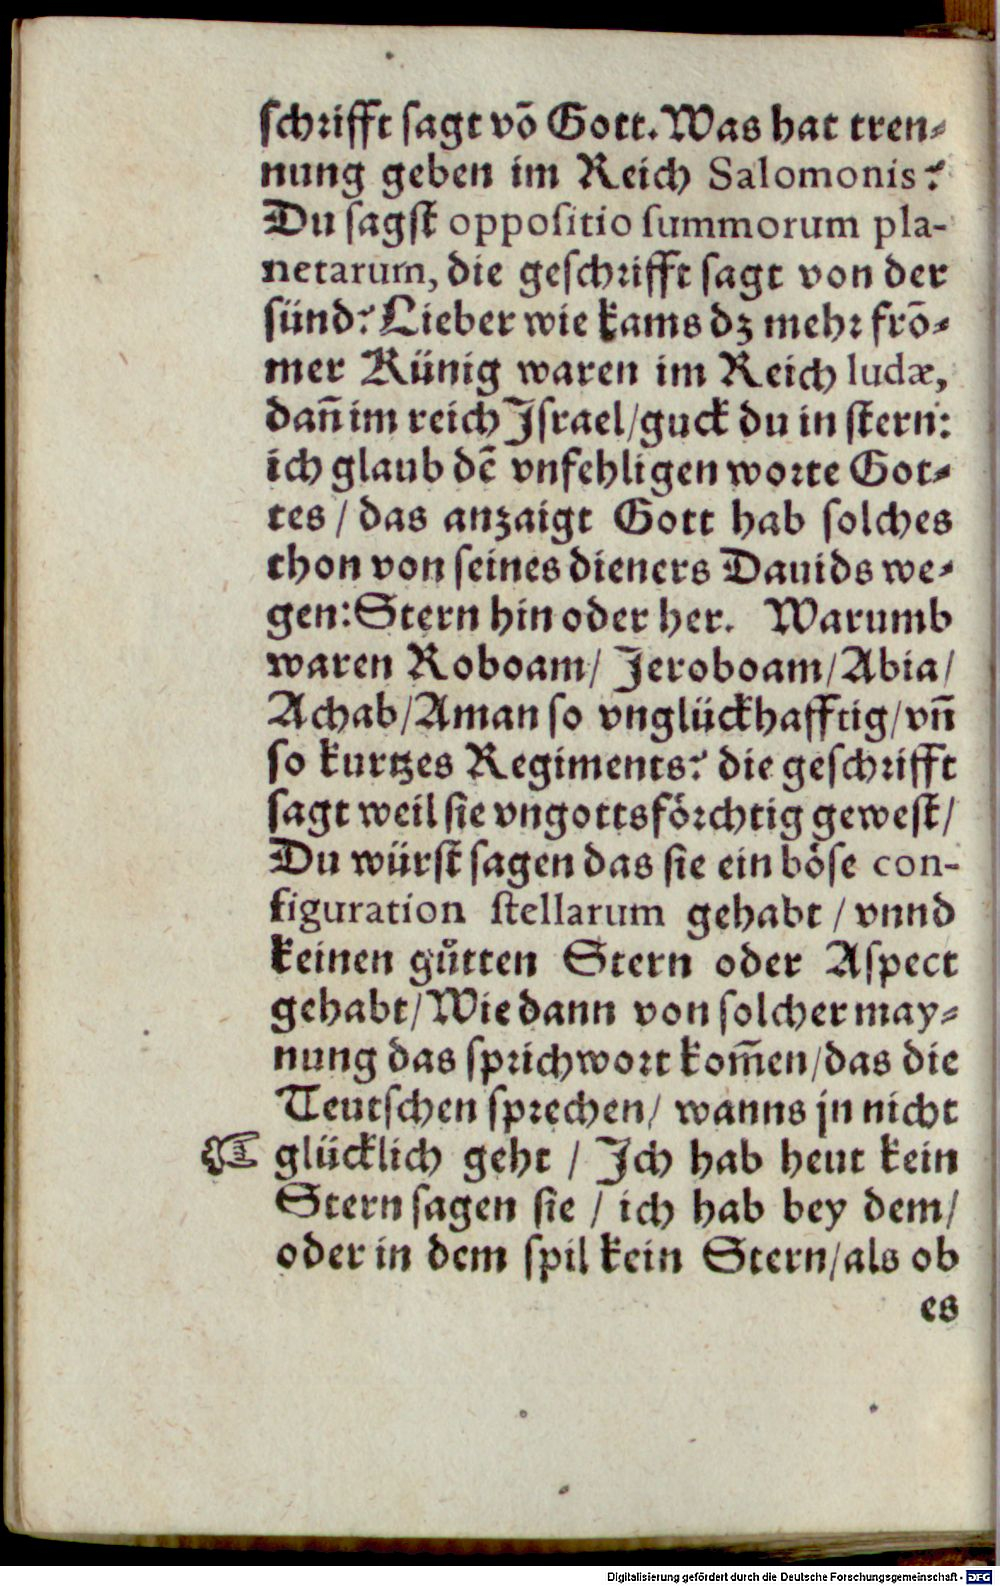 schrifft sagt võ Gott. Was hat tren⸗
nung geben im Reich Salomonis?
Du sagst oppositio summorum pla-
netarum, die geschrifft sagt von der
sünd? Lieber wie kams dz mehr frõ⸗
mer Künig waren im Reich Iudæ,
dañ im reich Israel/guck du in stern:
ich glaub dẽ vnfehligen worte Got⸗
tes / das anzaigt Gott hab solches
thon von seines dieners Dauids we⸗
gen: Stern hin oder her. Warumb
waren Roboam/ Jeroboam/Abia/
Achab/Aman so vnglückhafftig/vñ
so kurtzes Regiments? die geschrifft
sagt weil sie vngottsförchtig gewest/
Du würst sagen das sie ein böse con-
figuration stellarum gehabt / vnnd
keinen gůtten Stern oder Aspect
gehabt/Wie dann von solcher may⸗
nung das sprichwort kom̃en/das die
Teutschen sprechen/ wanns jn nicht
☞ glücklich geht / Ich hab heut kein
Stern sagen sie / ich hab bey dem/
oder in dem spil kein Stern/als ob
es
Digitalisierung gefördert durch die Deutsche Forschungsgemeinschaft - DFG